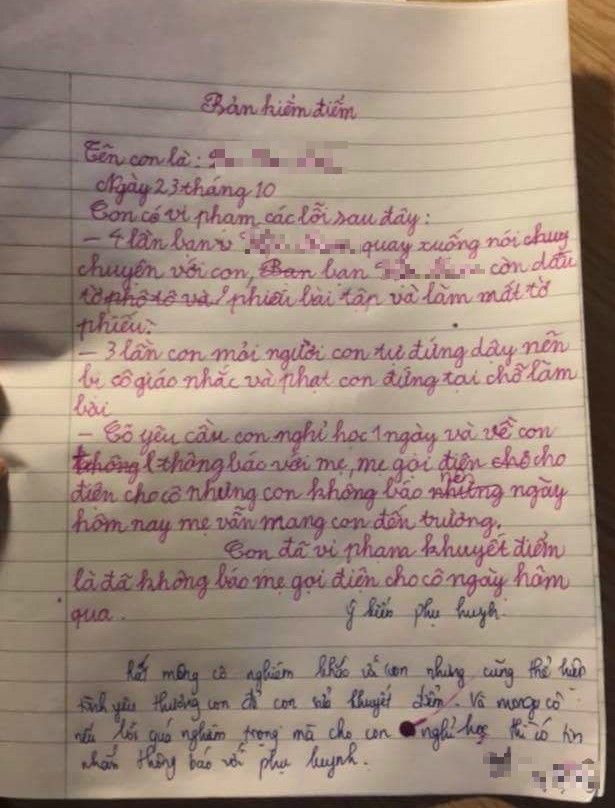 Bản kiểm điểm
Tên con là:
Ngày 23 tháng 10
Con có vi phạm các lỗi sau đây:
– 4 lần bạn quay xuống nói chuy
chuyện với con, Ban bạn còn dấu
tờ phô tô và phiếu bài tập và làm mất tờ
phiếu.
– 3 lần con mỏi người con tự đứng dậy nên
bị cô giáo nhắc và phạt con đứng tại chỗ làm
bài
– Cô yêu cầu con nghỉ học 1 ngày và về con
không thông báo với mẹ, mẹ gọi điện cho cho
điện cho cô nhưng con không báo nhưng nên ngày
hôm nay mẹ vẫn mang con đến trường.
Con đã vi phạm khuyết điểm
là đã không báo mẹ gọi điện cho cô ngày hôm
qua.
Ý kiến phụ huynh
Rất mong cô nghiêm khắc với con nhưng cũng thể hiện
tình yêu thương con để con sửa khuyết điểm. Và mong cô
nếu lỗi quá nghiêm trọng mà cho con nghỉ học thì có tin
nhắn thông báo với phụ huynh.